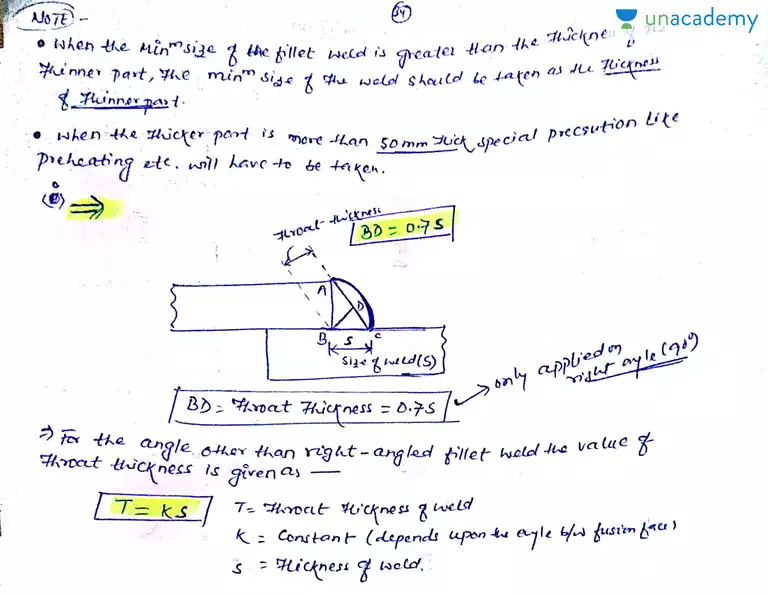 NOTE -
34
unacademy
• When the Minm size of the fillet weld is greater than the thickne
thinner part, the minm size of the weld should be taken as the thickness
of thinner part.
• When the thicker part is more than 50mm thick, special precaution like
preheating etc. will have to be taken.
⇒
throat thickness
BD = 0.7 S
A
D
B
C
S
Size of weld (S)
only applied on
right angle (90°)
BD = Throat Thickness = 0.7 S
⇒ For the angle other than right-angled fillet weld the value of
throat thickness is given as —
T = KS
T = Throat thickness of weld
K = Constant (depends upon the angle b/w fusion face)
S = Thickness of weld.